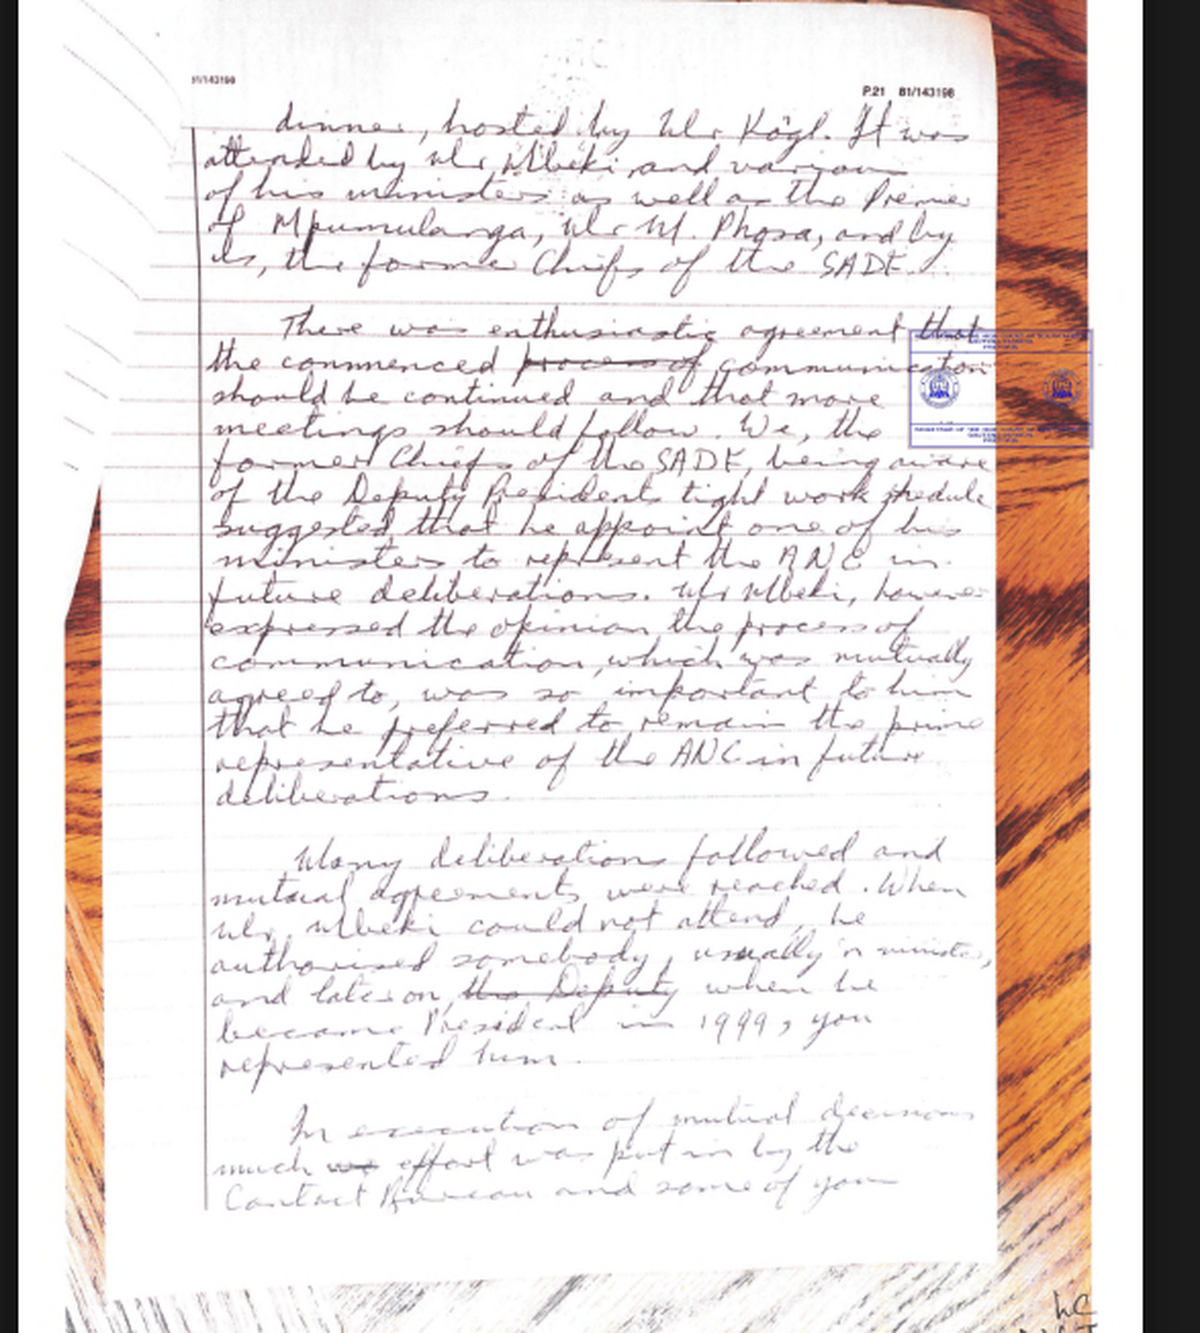 81/143198
P.21 81/143198
dinner, hosted by Mr Kögl. It was
attended by Mr Mbeki and various
of his ministers as well as the Premier
of Mpumulanga, Mr M. Phosa, and by
us, the former Chiefs of the SADF.
There was enthusiastic agreement that
the commenced process of communication
should be continued and that more
meetings should follow. We, the
former Chiefs of the SADF, being aware
of the Deputy Presidents tight work shedule
suggested that he appoint one of his
ministers to represent the ANC in
future deliberations. Mr Mbeki, however
expressed the opinion the process of
communication, which was mutually
agreed to, was so important to him
that he preferred to remain the prime
representative of the ANC in future
deliberations.
Many deliberations followed and
mutual agreements were reached. When
Mr Mbeki could not attend, he
authorised somebody, usually 'n minister,
and later on, the Deputy when he
became President in 1999, you
represented him.
In execution of mutual decisions
much we effort was put in by the
Contact Bureau and some of your